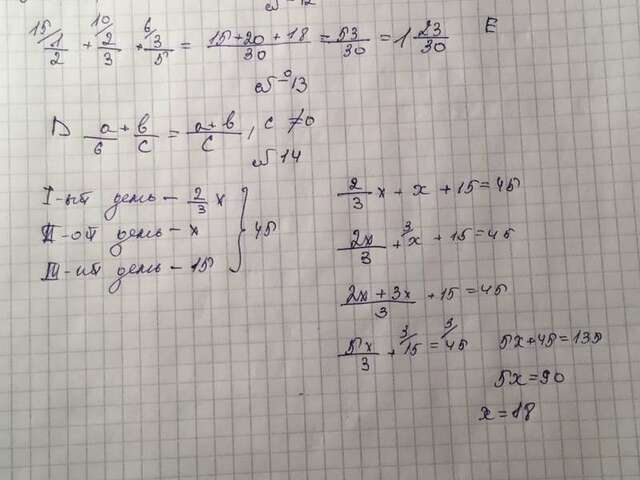 № 12
15/ 1/2 + 10/ 2/3 + 6/ 3/5 = (15+20+18)/30 = 53/30 = 1 23/30 E
№ 13
D a/в + в/c = (a+в)/c, c ≠ 0
№ 14
I-ый день – 2/3 x
II-ой день – x } 45
III-ий день – 15
2/3 x + x + 15 = 45
2x/3 + 3/ x + 15 = 45
(2x + 3x)/3 + 15 = 45
5x/3 + 3/ 15 = 3/ 45 5x+45=135
5x=90
x=18